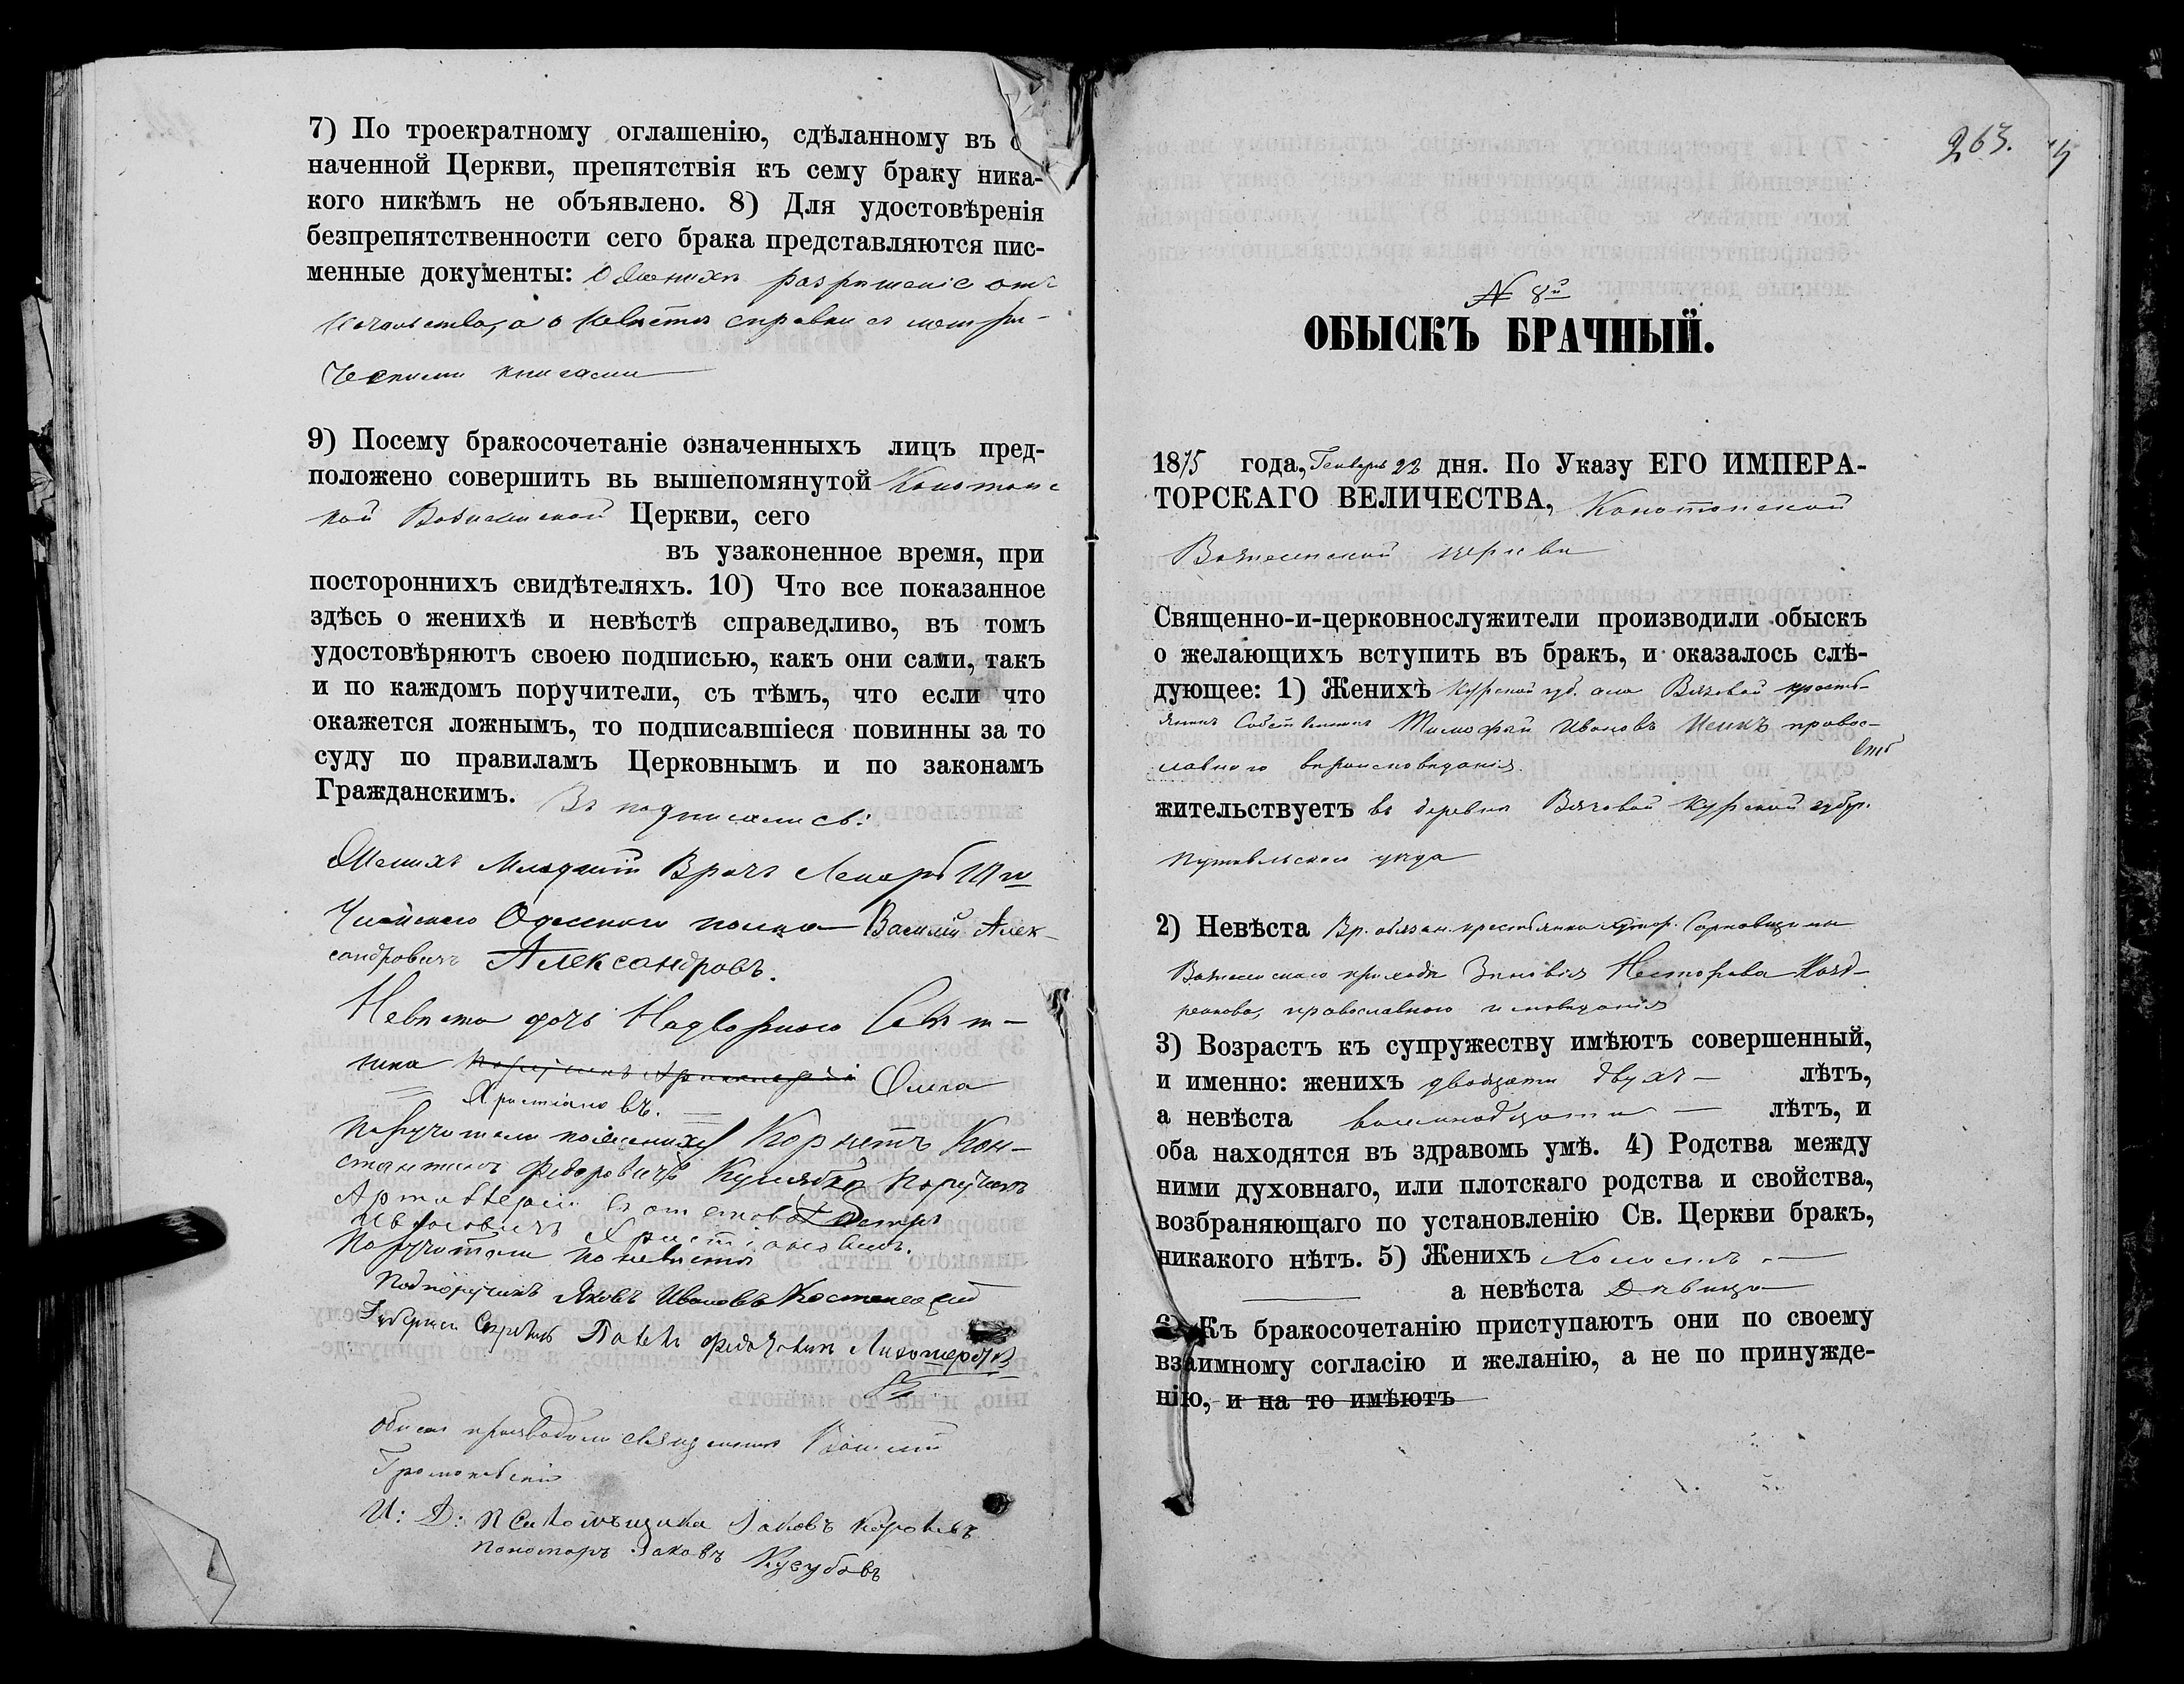 7) По троекратному оглашенію, сдѣланному въ
наченной Церкви, препятствія къ сему браку ника-
кого никѣмъ не объявлено. 8) Для удостовѣренія
безпрепятственности сего брака представляются пис-
менные документы: О женихѣ разрѣшеніе отъ
Начальства, а о невѣстѣ справки съ метри-
ческими книгами
9) Посему бракосочетаніе означенныхъ лицъ пред-
положено совершить вь вышепомянутой Конотопс
кой Вознесенской Церкви, сего
въ узаконенное время, при
постороннихъ свидѣтеляхъ. 10) Что все показанное
здѣсь о женихѣ и невѣстѣ справедливо, въ томъ
удостовѣряютъ своею подписью, какъ они сами, такъ
и по каждомъ поручители, съ тѣмъ, что если что
окажется ложнымъ, то подписавшіеся повинны за то
суду по правиламъ Церковнымъ и по законамъ
Гражданскимъ. подписались:
Женихъ Младшій Врачъ Лекарь
Одесскаго полка Василій Алек-
сандровичъ Александровъ.
Невѣста дочь Надворнаго Совѣт-
ника Олга
Поручители по женихѣ Корнетъ Кон-
стантинъ Федоровичъ Кулябка Поручикъ
Артиллеріи въ отставкѣ Петръ
Поручители по невѣстѣ
Подпоручикъ Яковъ Ивановъ Костенецкій
Губернск Секретарь Павелъ Федоровичъ
Обыскъ производили священникъ Василій
И: Д: Псаломьщика Іаковъ
Пономарь Іаковъ
263.
N 8й
ОБЫСКЪ БРАЧНЫЙ.
1875 года, Генваря 22 дня. По Указу ЕГО ИМПЕРА-
ТОРСКАГО ВЕЛИЧЕСТВА, Конотопской
Вознесенской церкви
Священно-и-церковнослужители производили обыскъ
о желающихъ вступить въ бракъ, и оказалось слѣ-
дующее: 1) Женихъ Курской губ. Вязовой кресть-
янинъ Собственникъ Тимофей Ивановъ правос-
лавнаго вѣроисповѣданія
жительствуетъ въ деревнѣ Вязовой Курской губер.
Путивльскаго уѣзда
2) Невѣста Вр. обязан. крестьянка хутор. Сарнавщины
Вознесенскаго прихода Зиновія Несторова
православнаго исповѣданія
3) Возрастъ къ супружеству имѣютъ совершенный,
и именно: женихъ двадцати двухъ — лѣтъ,
а невѣста восемнадцати — лѣтъ, и
оба находятся въ здравомь умѣ. 4) Родства между
ними духовнаго, или плотскаго родства и свойства,
возбраняющаго по установленію Св. Церкви бракъ,
никакого нѣтъ. 5) Женихъ холостъ —
а невѣста Дѣвица
6) Къ бракосочетанію приступаютъ они по своему
взаимному согласію и желанію, а не по принужде-
нію, и на то имѣютъ